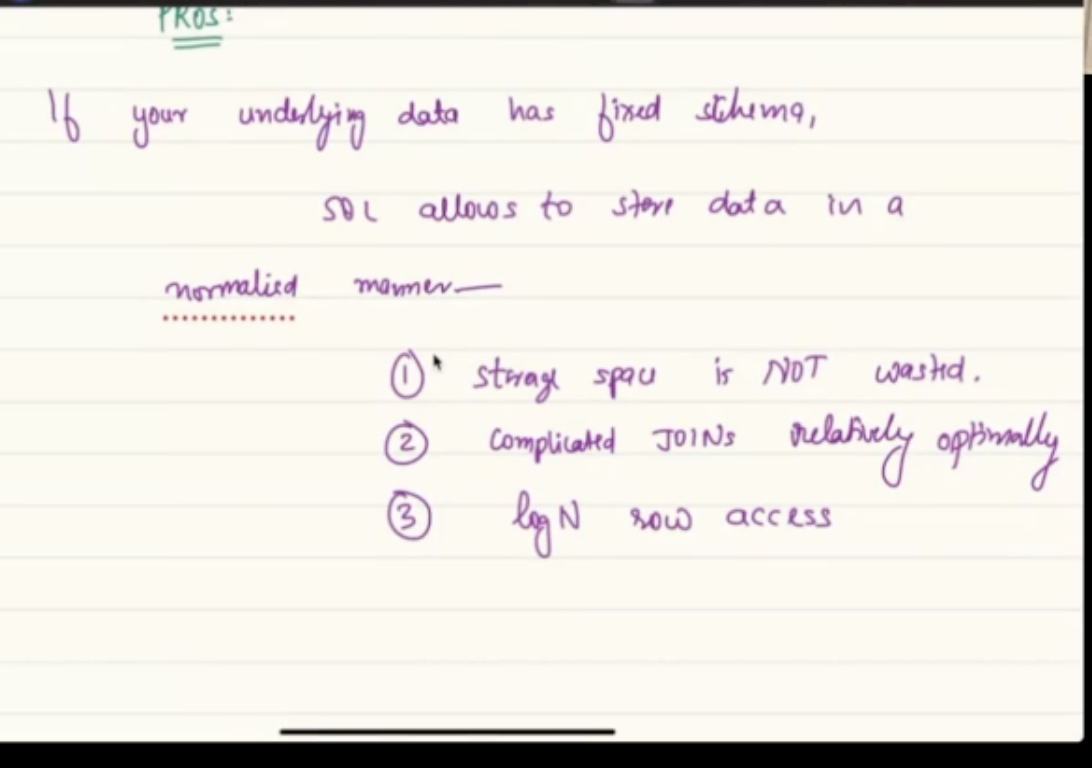 PROS:
If your underlying data has fixed schema,
SQL allows to store data in a
normalied manner—
① storage space is NOT wasted.
② complicated JOINs relatively optimally
③ log N row access